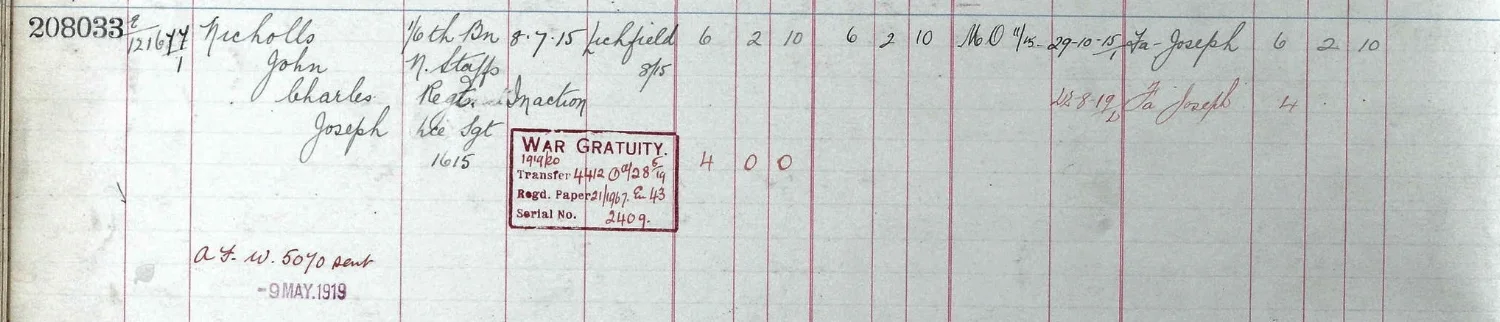 208033 E/121677/1 Nicholls 1/6th Bn 8.7.15 Lichfield 6 2 10 6 2 10 M.O 11/15 29-10-15 Fa- Joseph 6 2 10
John N. Staffs 8/15
Charles Regt. In action 22-8-19 Fa Joseph 4
Joseph Lce Sgt
1615 4 0 0
WAR GRATUITY.
1919/20
Transfer 4412 28/5/19
Regd. Paper 21/1967. En 43
Serial No. 2409.
A.F. W. 5070 sent
-9 MAY.1919